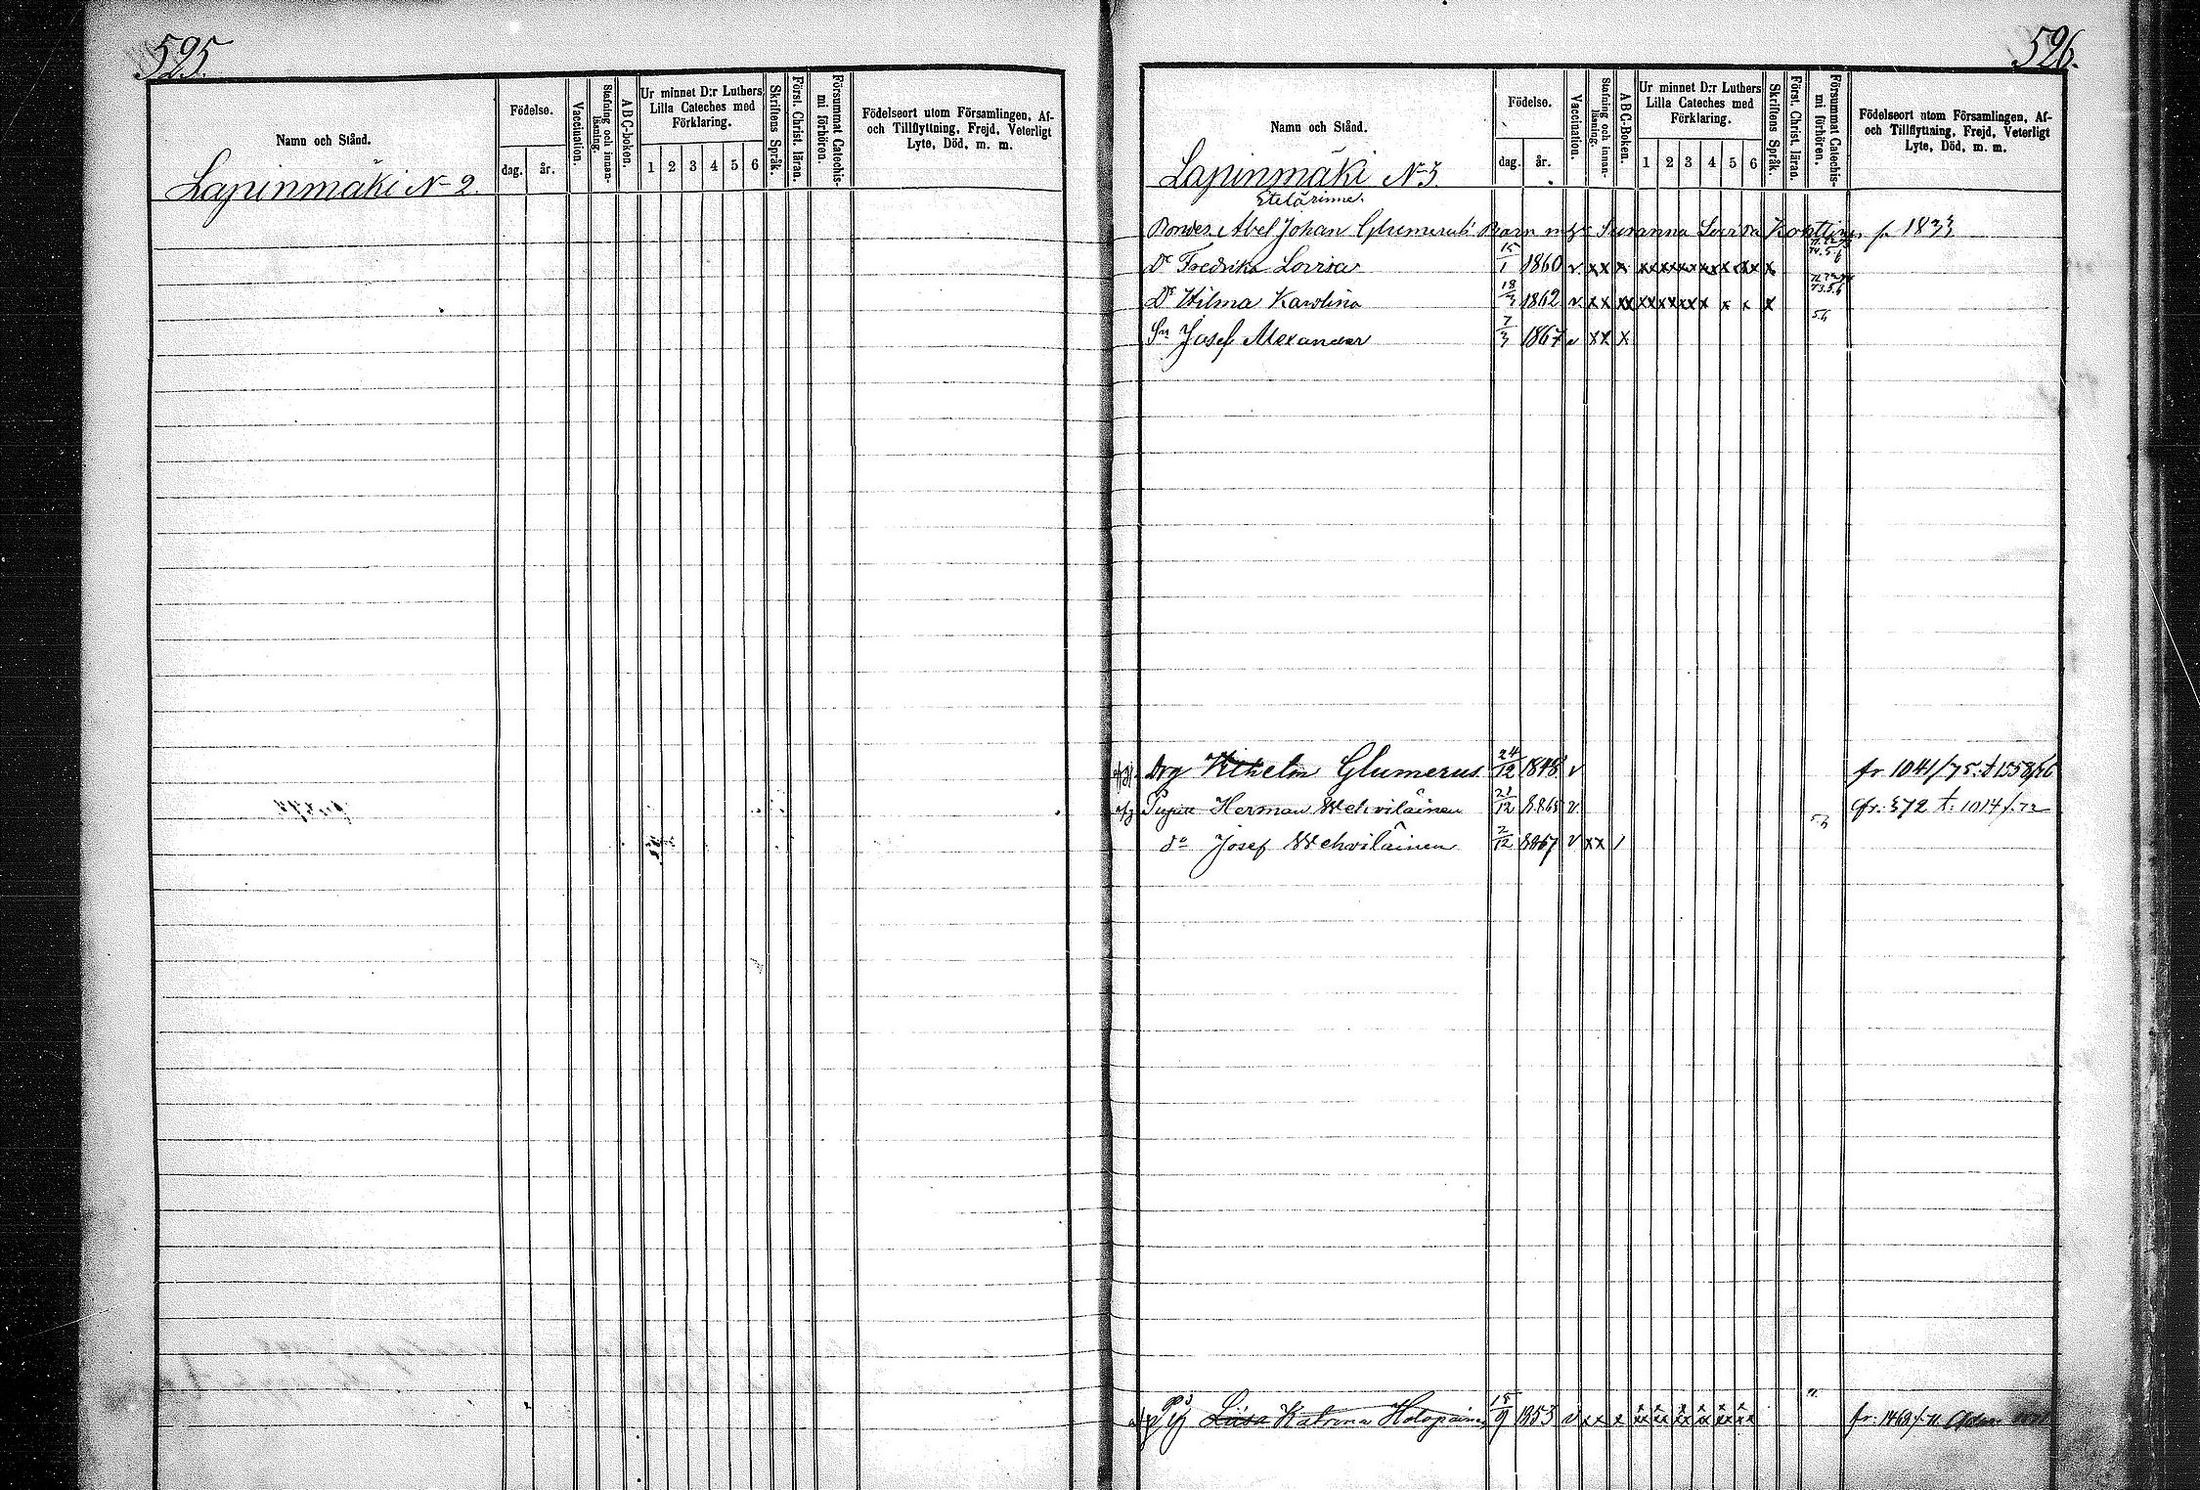 595.
Namn och Stånd.
Födelse.
dag.
år.
Vaccination.
Stafning och innan-
läsning.
A B C-boken.
Ur minnet D:r Luthers
Lilla Cateches med
Förklaring.
1 2 3 4 5 6
Skriftens Språk.
Först. Christ. läran.
Försummat Catechis-
mi förhören.
Födelseort utom Församlingen, Af-
och Tillflyttning, Frejd, Veterligt
Lyte, Död, m. m.
Lapinmäki N 2.
526.
Namn och Stånd.
Födelse.
dag.
år.
Vaccination.
Stafning och innan-
läsning.
A B C-Boken.
Ur minnet D:r Luthers
Lilla Cateches med
Förklaring.
1 2 3 4 5 6
Skriftens Språk.
Först. Christ. läran.
Försummat Catechis-
mi förhören.
Födelseort utom Församlingen, Af-
och Tillflyttning, Frejd, Veterligt
Lyte, Död, m. m.
Lapinmäki N 3.
Etelärinne.
Bondes Abel Johan Glumerus Barn Susanna Lovisa Konttinen 1833
Dr Fredrika Lovisa 15/1 1860 v xx x
Dr Hilma Karolina 18/3 1862 v xx xx
Sn Josef Alexander 7/3 1867 v xx x
Drg Vilhelm Glumerus 24/12 1848 v fr 1041/75
Herman Wehviläinen 21/12 1865 v 572 t: 1014/72
do Josef Wehviläinen 2/12 1867 v xx
Pig Liisa Katrina Holopainen 15/9 1853 v xx x